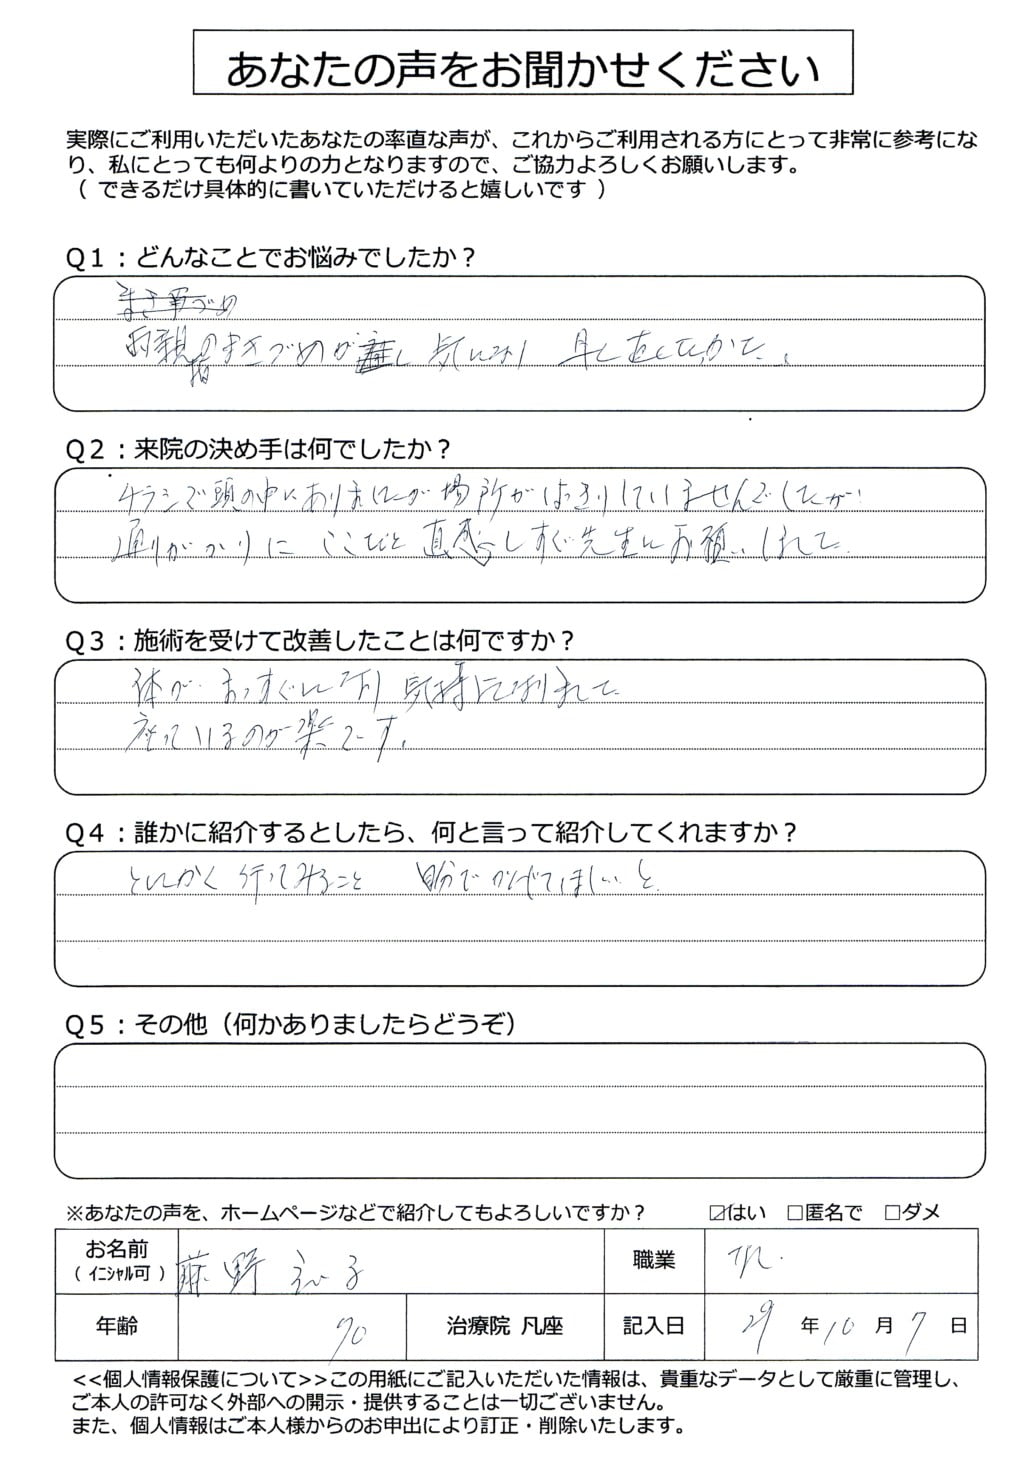 あなたの声をお聞かせください
実際にご利用いただいたあなたの率直な声が、これからご利用される方にとって非常に参考にな
り、私にとっても何よりの力となりますので、ご協力よろしくお願いします。
（ できるだけ具体的に書いていただけると嬉しいです ）
Q１：どんなことでお悩みでしたか？
両親指のまきづめが 気になり 早く直したかった。
Q２：来院の決め手は何でしたか？
チラシで頭の中にありましたが場所がはっきりしていませんでしたが
通りがかりに ここだと直感しすぐ先生にお願いしました
Q３：施術を受けて改善したことは何ですか？
体がまっすぐになり 気持よくなりました
座っているのが楽です。
Q４：誰かに紹介するとしたら、何と言って紹介してくれますか？
とにかく行ってみること 自分でかんじてほしいと
Q５：その他（何かありましたらどうぞ）
※あなたの声を、ホームページなどで紹介してもよろしいですか？ ☑はい □匿名で □ダメ
お名前
（ イニシャル可 ） 藤野 子 職業
年齢 70 治療院 凡座 記入日 29 年 10 月 7 日
<<個人情報保護について>>この用紙にご記入いただいた情報は、貴重なデータとして厳重に管理し、
ご本人の許可なく外部への開示・提供することは一切ございません。
また、個人情報はご本人様からのお申出により訂正・削除いたします。